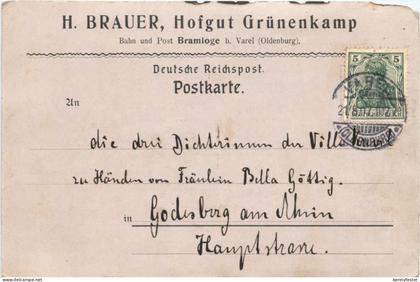 H. BRAUER, Hofgut Grünenkamp
Bahn und Post Bramloge b. Varel (Oldenburg).
Deutsche Reichspost.
Postkarte.
An
die drei Dichterinnen der Villa
zu Händen von Fräulein Bella Göttig.
in Godesberg am Rhein
Hauptstrasse.
5 5
VAREL
(OLDENBURG)